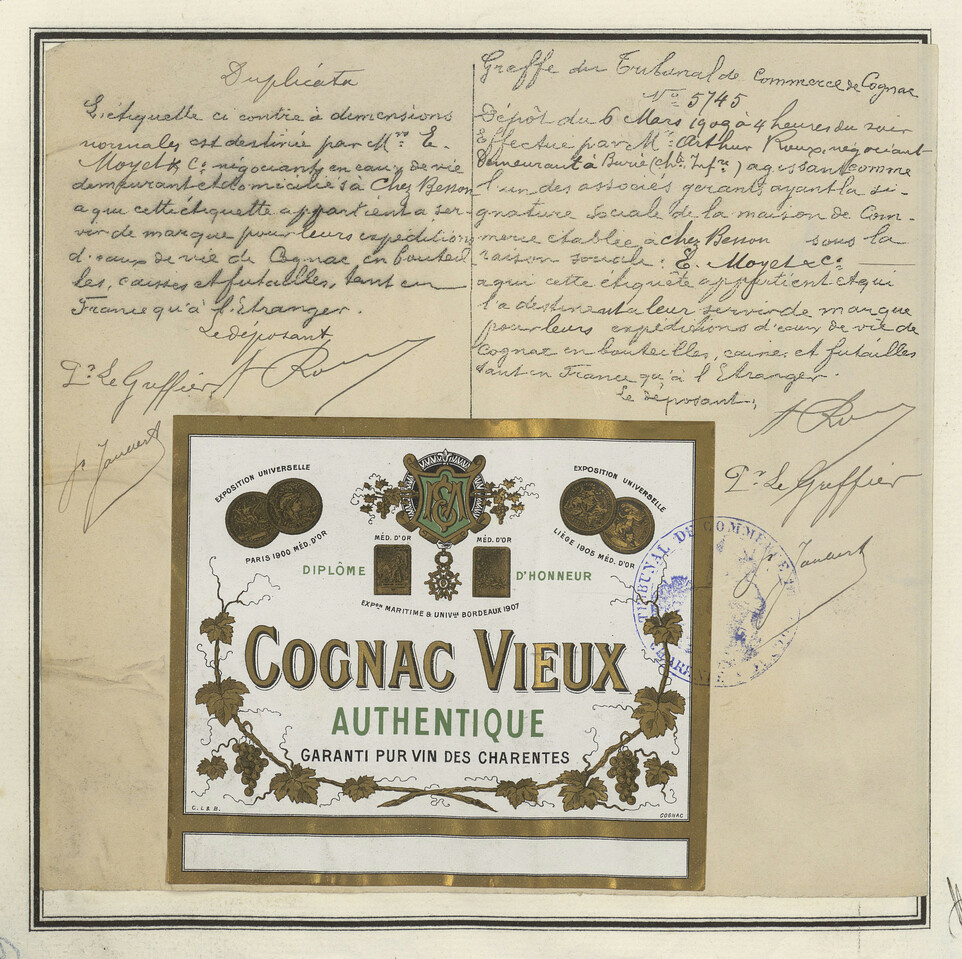 Duplicata
L'étiquette ci contre à dimensions
normales est destinée par Mrs E.
Moyet & Co négociants en eaux de vie
demeurant et domiciliés à Chez Besson
a qui cette étiquette appartient a ser-
vir de marque pour leurs expéditions
d'eaux de vie de Cognac en bouteil
les, caisses et futailles, tant en
France qu'à l'Etranger.
Le déposant
Pr Le Greffier A Roux
Greffe du Tribunal de Commerce de Cognac
No 5745
Dépôt du 6 Mars 1909 à 4 heures du soir
Effectué par Mr Arthur Roux, négociant
demeurant à Burie (Chte Infre) agissant comme
l'un des associés gérants ayant la si-
gnature sociale de la maison de Com-
merce établie à chez Besson sous la
raison sociale: E. Moyet & Co
a qui cette étiquête appartient et qui
l'a destinent a leur servir de marque
pour leurs expéditions d'eaux de vie de
Cognac en bouteilles, caisses et futailles
tant en France qu'à l'Etranger.
Le déposant,
A Roux
Pr Le Greffier
EXPOSITION UNIVERSELLE
PARIS 1900 MÉD. D'OR
EXPOSITION UNIVERSELLE
LIÈGE 1905 MÉD. D'OR
MÉD. D'OR MÉD. D'OR
DIPLÔME D'HONNEUR
EXPon MARITIME & UNIVlle BORDEAUX 1907
COGNAC VIEUX
AUTHENTIQUE
GARANTI PUR VIN DES CHARENTES
C. L. & B. COGNAC
TRIBUNAL DE COMMERCE